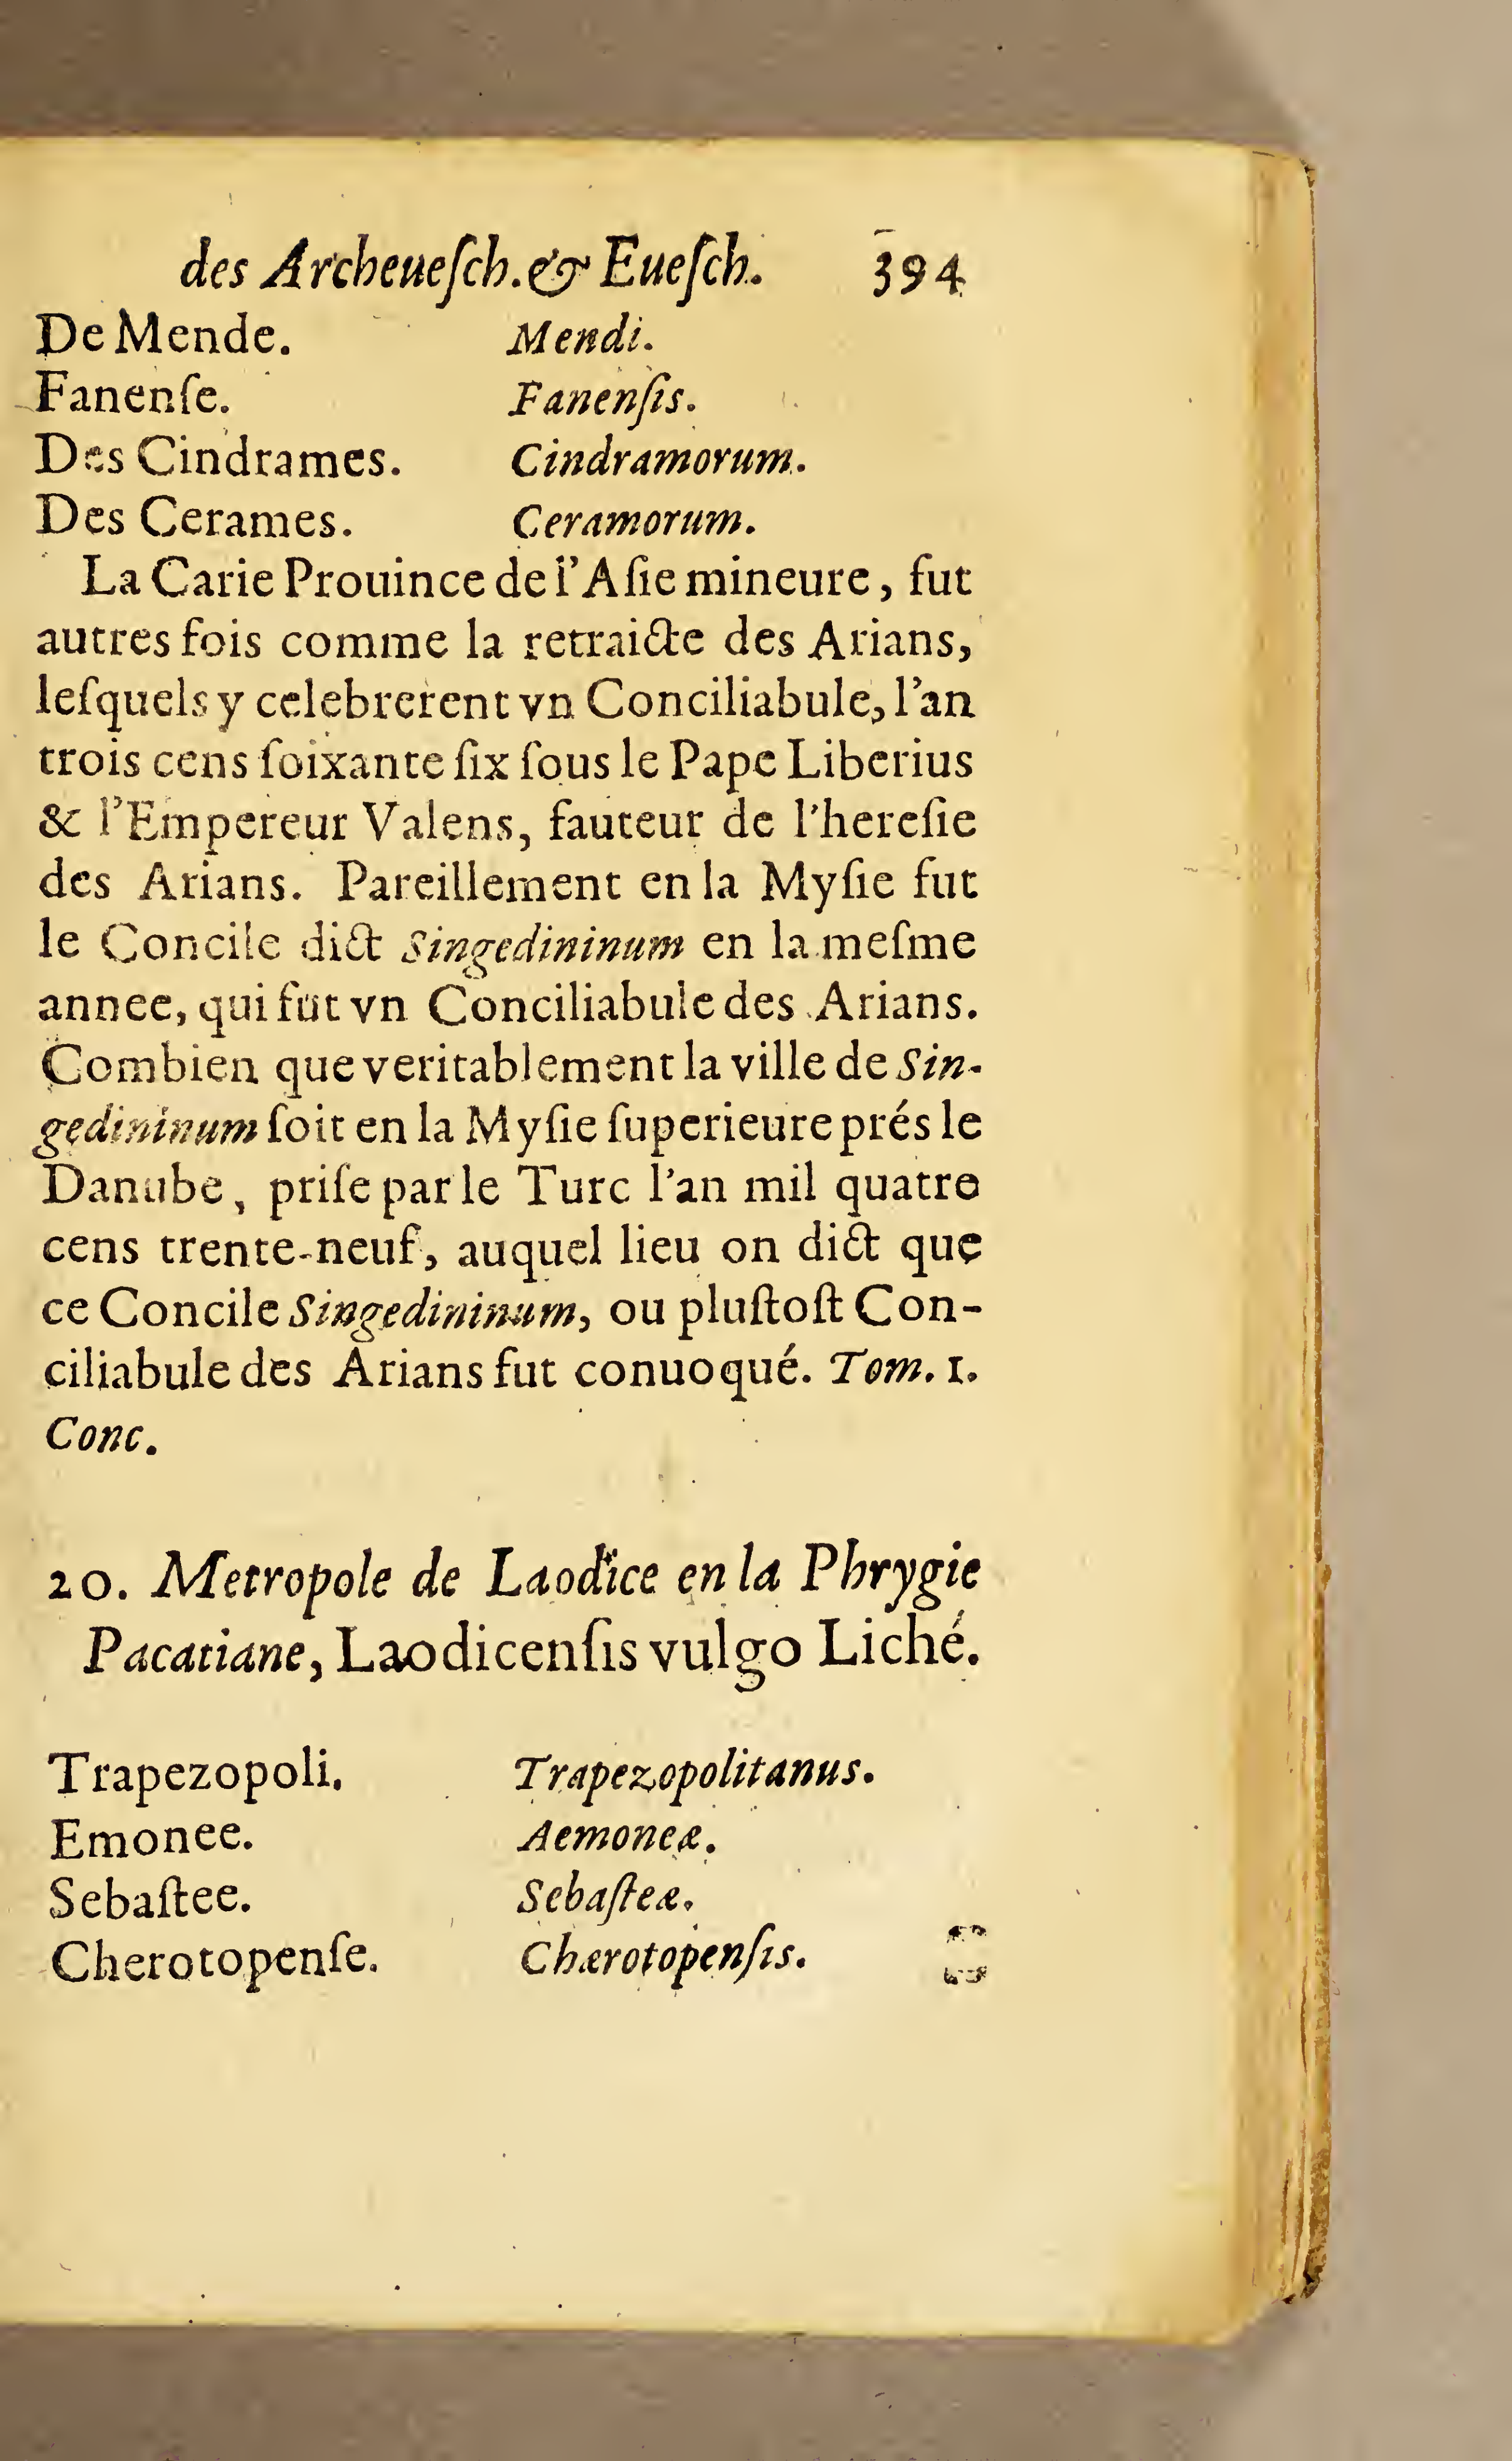 des Archeueſch. & Eueſch. 394
De Mende. Mendi.
Fanenſe. Fanenſis.
Des Cindrames. Cindramorum.
Des Cerames. Ceramorum.
La Carie Prouince de l'Aſie mineure, fut
autres fois comme la retraicte des Arians,
leſquels y celebrerent vn Conciliabule, l'an
trois cens ſoixante ſix ſous le Pape Liberius
& l'Empereur Valens, fauteur de l'hereſie
des Arians. Pareillement en la Myſie fut
le Concile dict Singedininum en la meſme
annee, qui fut vn Conciliabule des Arians.
Combien que veritablement la ville de Sin-
gedininum ſoit en la Myſie ſuperieure prés le
Danube, priſe par le Turc l'an mil quatre
cens trente-neuf, auquel lieu on dict que
ce Concile Singedininum, ou pluſtoſt Con-
ciliabule des Arians fut conuoqué. Tom. 1.
Conc.
20. Metropole de Laodice en la Phrygie
Pacatiane, Laodicenſis vulgo Liché.
Trapezopoli. Trapezopolitanus.
Emonee. Aemoneæ.
Sebaſtee. Sebaſteæ.
Cherotopenſe. Chærotopenſis.